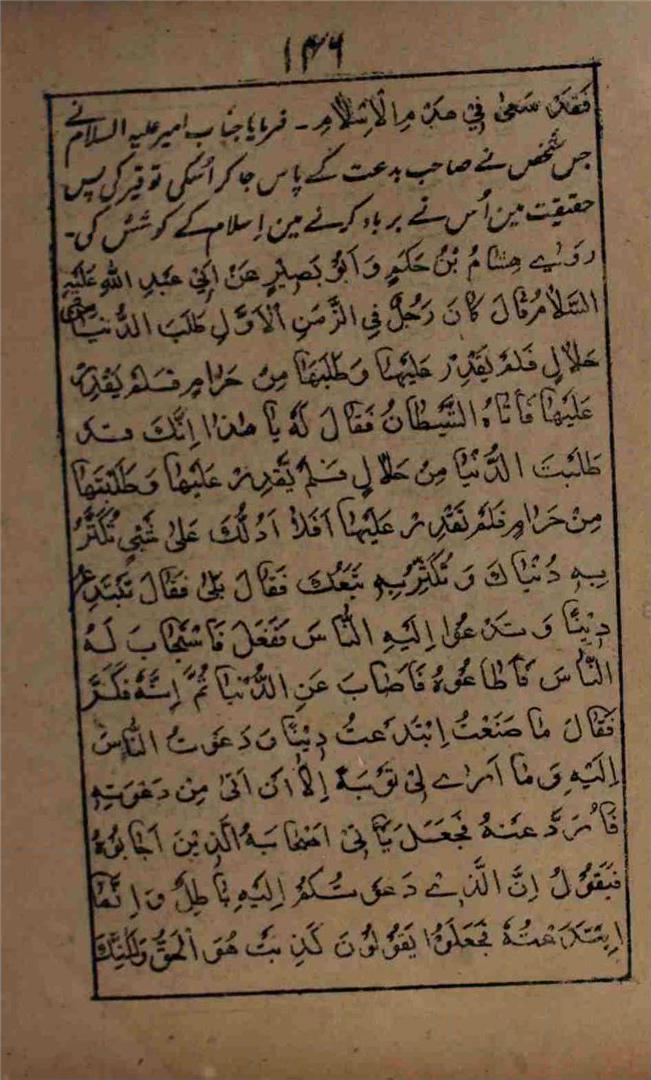 ۱۴۶
فَقَدْ سَعیٰ فِیْ ھَدْمِ الْاِسْلَامِ ۔ فرمایا جناب امیر علیہ السلام نے
جس شخص نے صاحب بدعت کے پاس جاکر اُسکی توقیر کی پس
حقیقت مین اُس نے برباد کرنے مین اِسلام کے کوشش کی۔
روٰے ھِشَامُ بْنُ حَکَمٍ وَ اَبُوْ بَصِیْرٍ عَنْ اَبِیْ عَبْدِ اللهِ عَلَیْہِ
السَّلَامُ قَالَ کَانَ رَجُلٌ فِی الزَّمَنِ الْاَوَّلِ طَلَبَ الدُّنْیَا مِنْ
حَلَالٍ فَلَمْ یَقْدِرْ عَلَیْھَا وَ طَلَبَھَا مِنْ حَرَامٍ فَلَمْ یَقْدِرْ
عَلَیْھَا فَاَتَاہُ الشَّیْطَانُ فَقَالَ لَہٗ یَا ھٰذَا اِنَّکَ قَدْ
طَلَبْتَ الدُّنْیَا مِنْ حَلَالٍ فَلَمْ یَقْدِرْ عَلَیْھَا وَ طَلَبْتَھَا
مِنْ حَرَامٍ فَلَمْ تَقْدِرْ عَلَیْھَا اَفَلَا اَدُلُّکَ عَلیٰ شَیْءٍ تُکَثِّرُ
بِہٖ دُنْیَاکَ وَ تُکَثِّرُ بِہٖ تَبَعُکَ فَقَالَ بَلیٰ فَقَالَ تَبْتَدِعُ
دِیْنًا وَ تَدْعُوْا اِلَیْہِ النَّاسَ فَفَعَلَ فَاسْتَجَابَ لَہُ
النَّاسُ فَاَطَاعُوْہُ فَاَصَابَ عَنِ الدُّنْیَا ثُمَّ اِنَّہٗ فَکَّرَ
فَقَالَ مَا صَنَعْتُ اِبْتَدَعْتُ دِیْنًا وَ دَعَوْتُ النَّاسَ
اِلَیْہِ وَ مَا اَرٰے لِیْ تَوْبَۃً اِلَّا اَنْ اٰتِیَ مَنْ دَعَوْتُہٗ
فَاَرُدَّ عَنْہُ فَجَعَلَ یَاْتِیْ اَصْحَابَہُ الَّذِیْنَ اَجَابُوْہُ
فَیَقُوْلُ اِنَّ الَّذِیْ دَعَوْتُکُمْ اِلَیْہِ بَاطِلٌ وَ اِنَّمَا
اِبْتَدَعْتُہٗ فَجَعَلُوْا یَقُوْلُوْنَ کَذِبْتَ ھُوَ الْحَقُّ وَلٰکِنَّکَ